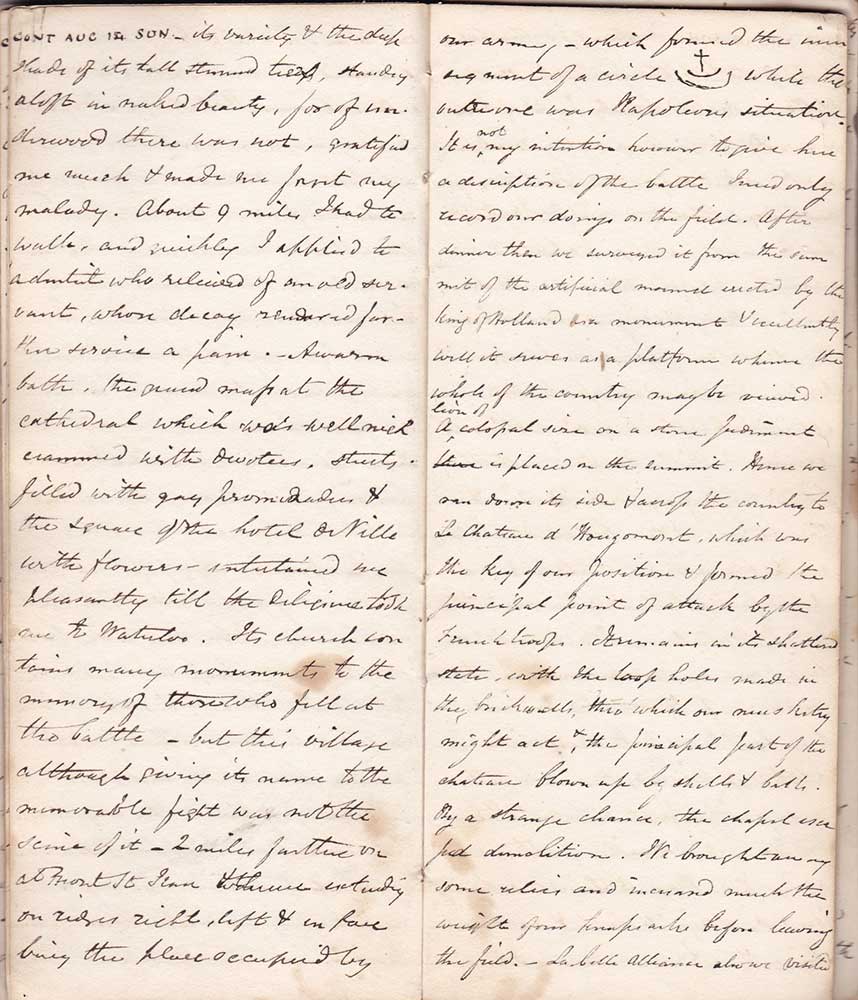 CONT AUG 12 SUN - its variety & the deep
shade of its tall stemmed trees, standing
aloft in naked beauty, for of un-
derwood there was not, gratified
me much & made me forget my
malady. About 9 miles I had to
walk, and quickly I applied to
a dentist who relieved of an old ser-
vant, whose decay rendered fur-
ther service a pain. - A warm
bath, the grand mass at the
cathedral which was well nigh
crammed with devotees, streets
filled with gay promenaders &
the square of the hotel de Ville
with flowers - entertained me
pleasantly till the Diligence took
me to Waterloo. Its church con
tains many monuments to the
memory of those who fell at
the battle - but this village
although giving its name to the
memorable fight was not the
scene of it - 2 miles further on
at Mont St Jean & thence extending
on ridges right, left & in face
being the place occupied by
our army, - which formed the inner
segment of a circle while the
outer one was Napoleons situation.
It is not my intention however to give here
a description of the battle I need only
record our doings on the field. After
dinner then we surveyed it from the sum
mit of the artificial mound erected by the
king of Holland as a monument & excellently
well it serves as a platform whence the
whole of the country may be viewed.
A lion of colossal size on a stone pediment
is placed on the summit. Hence we
ran down its side & across the country to
Le Chateau d'Hougomont, which was
the key of our position & formed the
principal point of attack by the
French troops. It remains in its shattered
state, with the loop holes made in
the brick walls, thro' which our musketry
might act &, the principal part of the
chateau blown up by shells & balls.
By a strange chance, the chapel esca
ped demolition. We brought away
some relics and increased much the
weight of our knapsacks before leaving
the field. - La belle Alliance also we visited